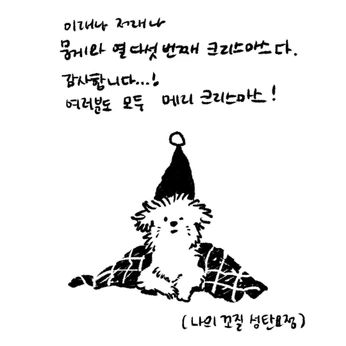 이래나 저래나
뭉게와 열다섯 번째 크리스마스다.
감사합니다...!
여러분도 모두 메리 크리스마스!
(나의 꼬질 성탄요정)